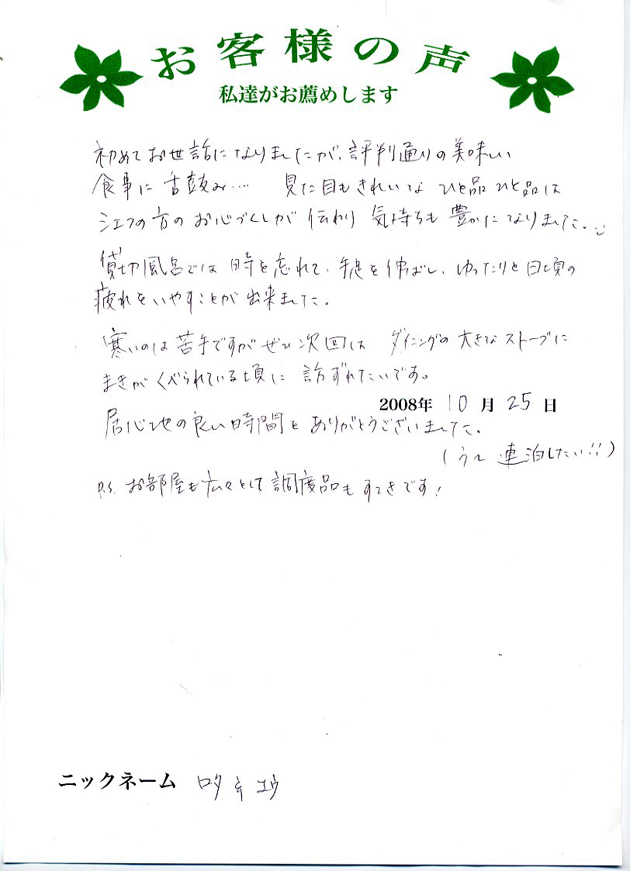 お客様の声
私達がお薦めします
初めてお世話になりましたが、評判通りの美味しい
食事に舌鼓み…. 見た目もきれいな ひと品ひと品は
シェフの方のお心づくしが伝わり 気持ちも豊かになりました。
貸切風呂では時を忘れて、手足を伸ばし、ゆったりと日頃の
疲れをいやすことが出来ました。
寒いのは苦手ですがぜひ次回は ダイニングの大きなストーブに
まきがくべられている頃に訪ずれたいです。
2008年 10月 25日
居心地の良い時間をありがとうございました。
(う〜 連泊したい!!)
P.S. お部屋も広々として調度品もすてきです!
ニックネーム ロタ ユウ